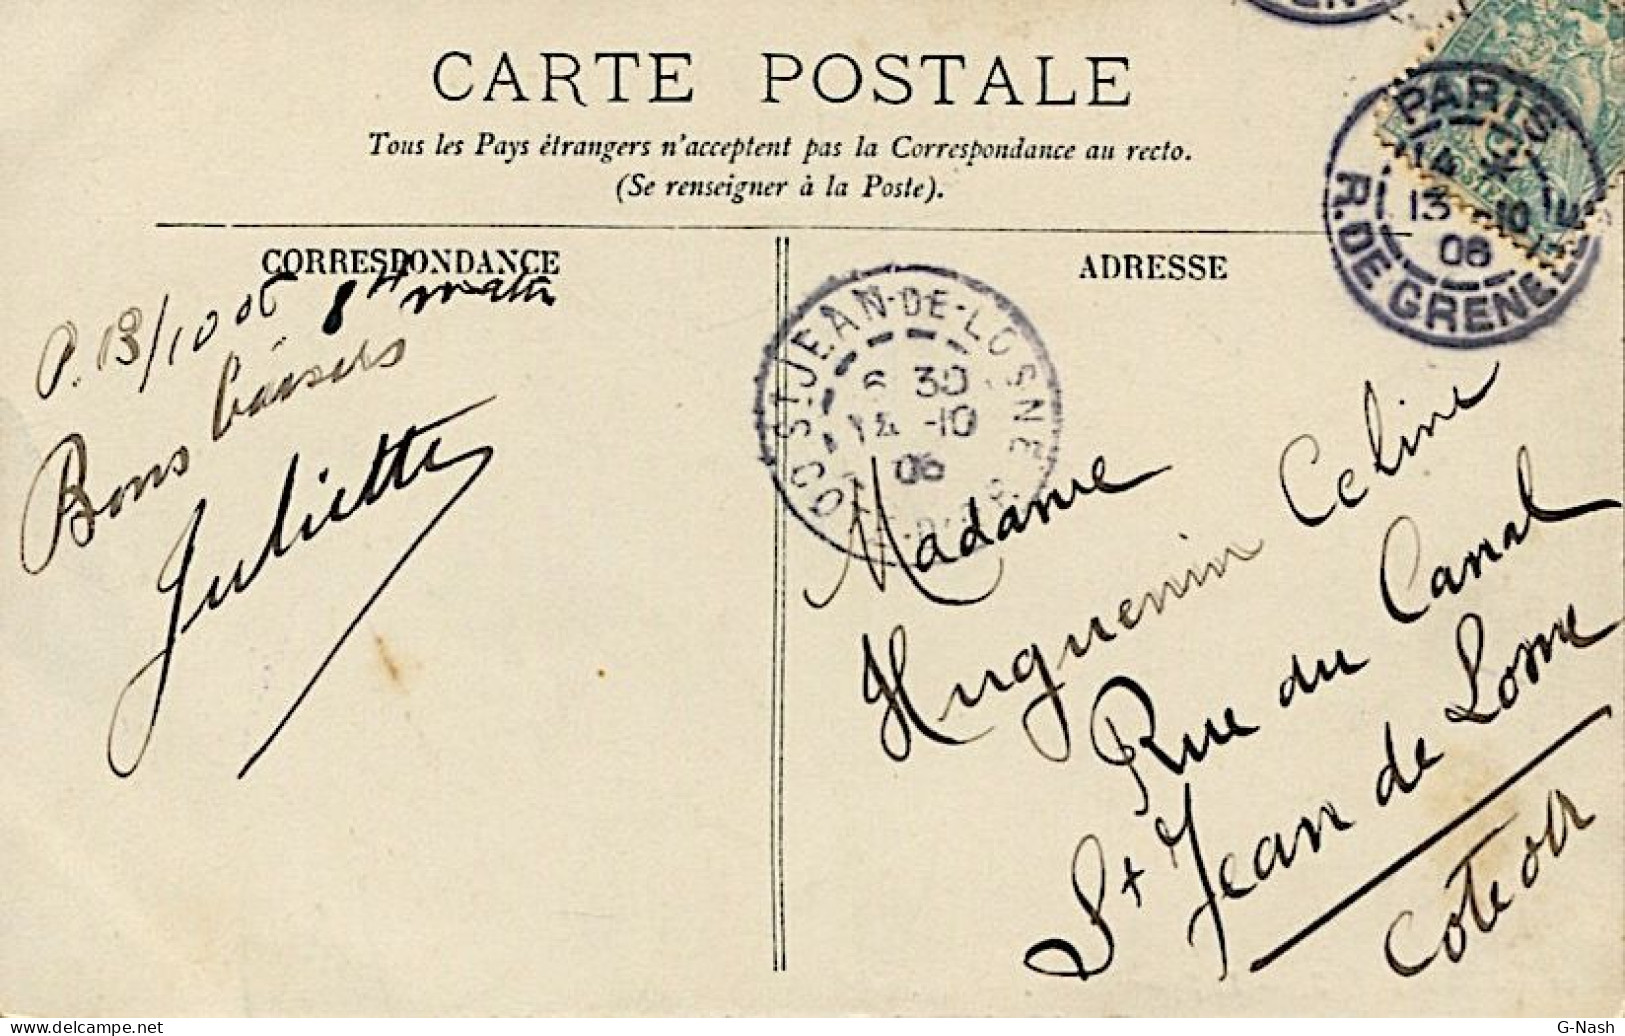 CARTE POSTALE
Tous les Pays étrangers n'acceptent pas la Correspondance au recto.
(Se renseigner à la Poste).
CORRESPONDANCE
P. 13/10 06 8H matin
Bons baisers
Juliette
ADRESSE
PARIS
13 10
06
R. DE GRENELLE
ST JEAN-DE-LOSNE
30
-10
06
Madame
Huguenin Celine
Rue du Canal
St Jean de Losne
Cote or
delcampe.net
G-Nash